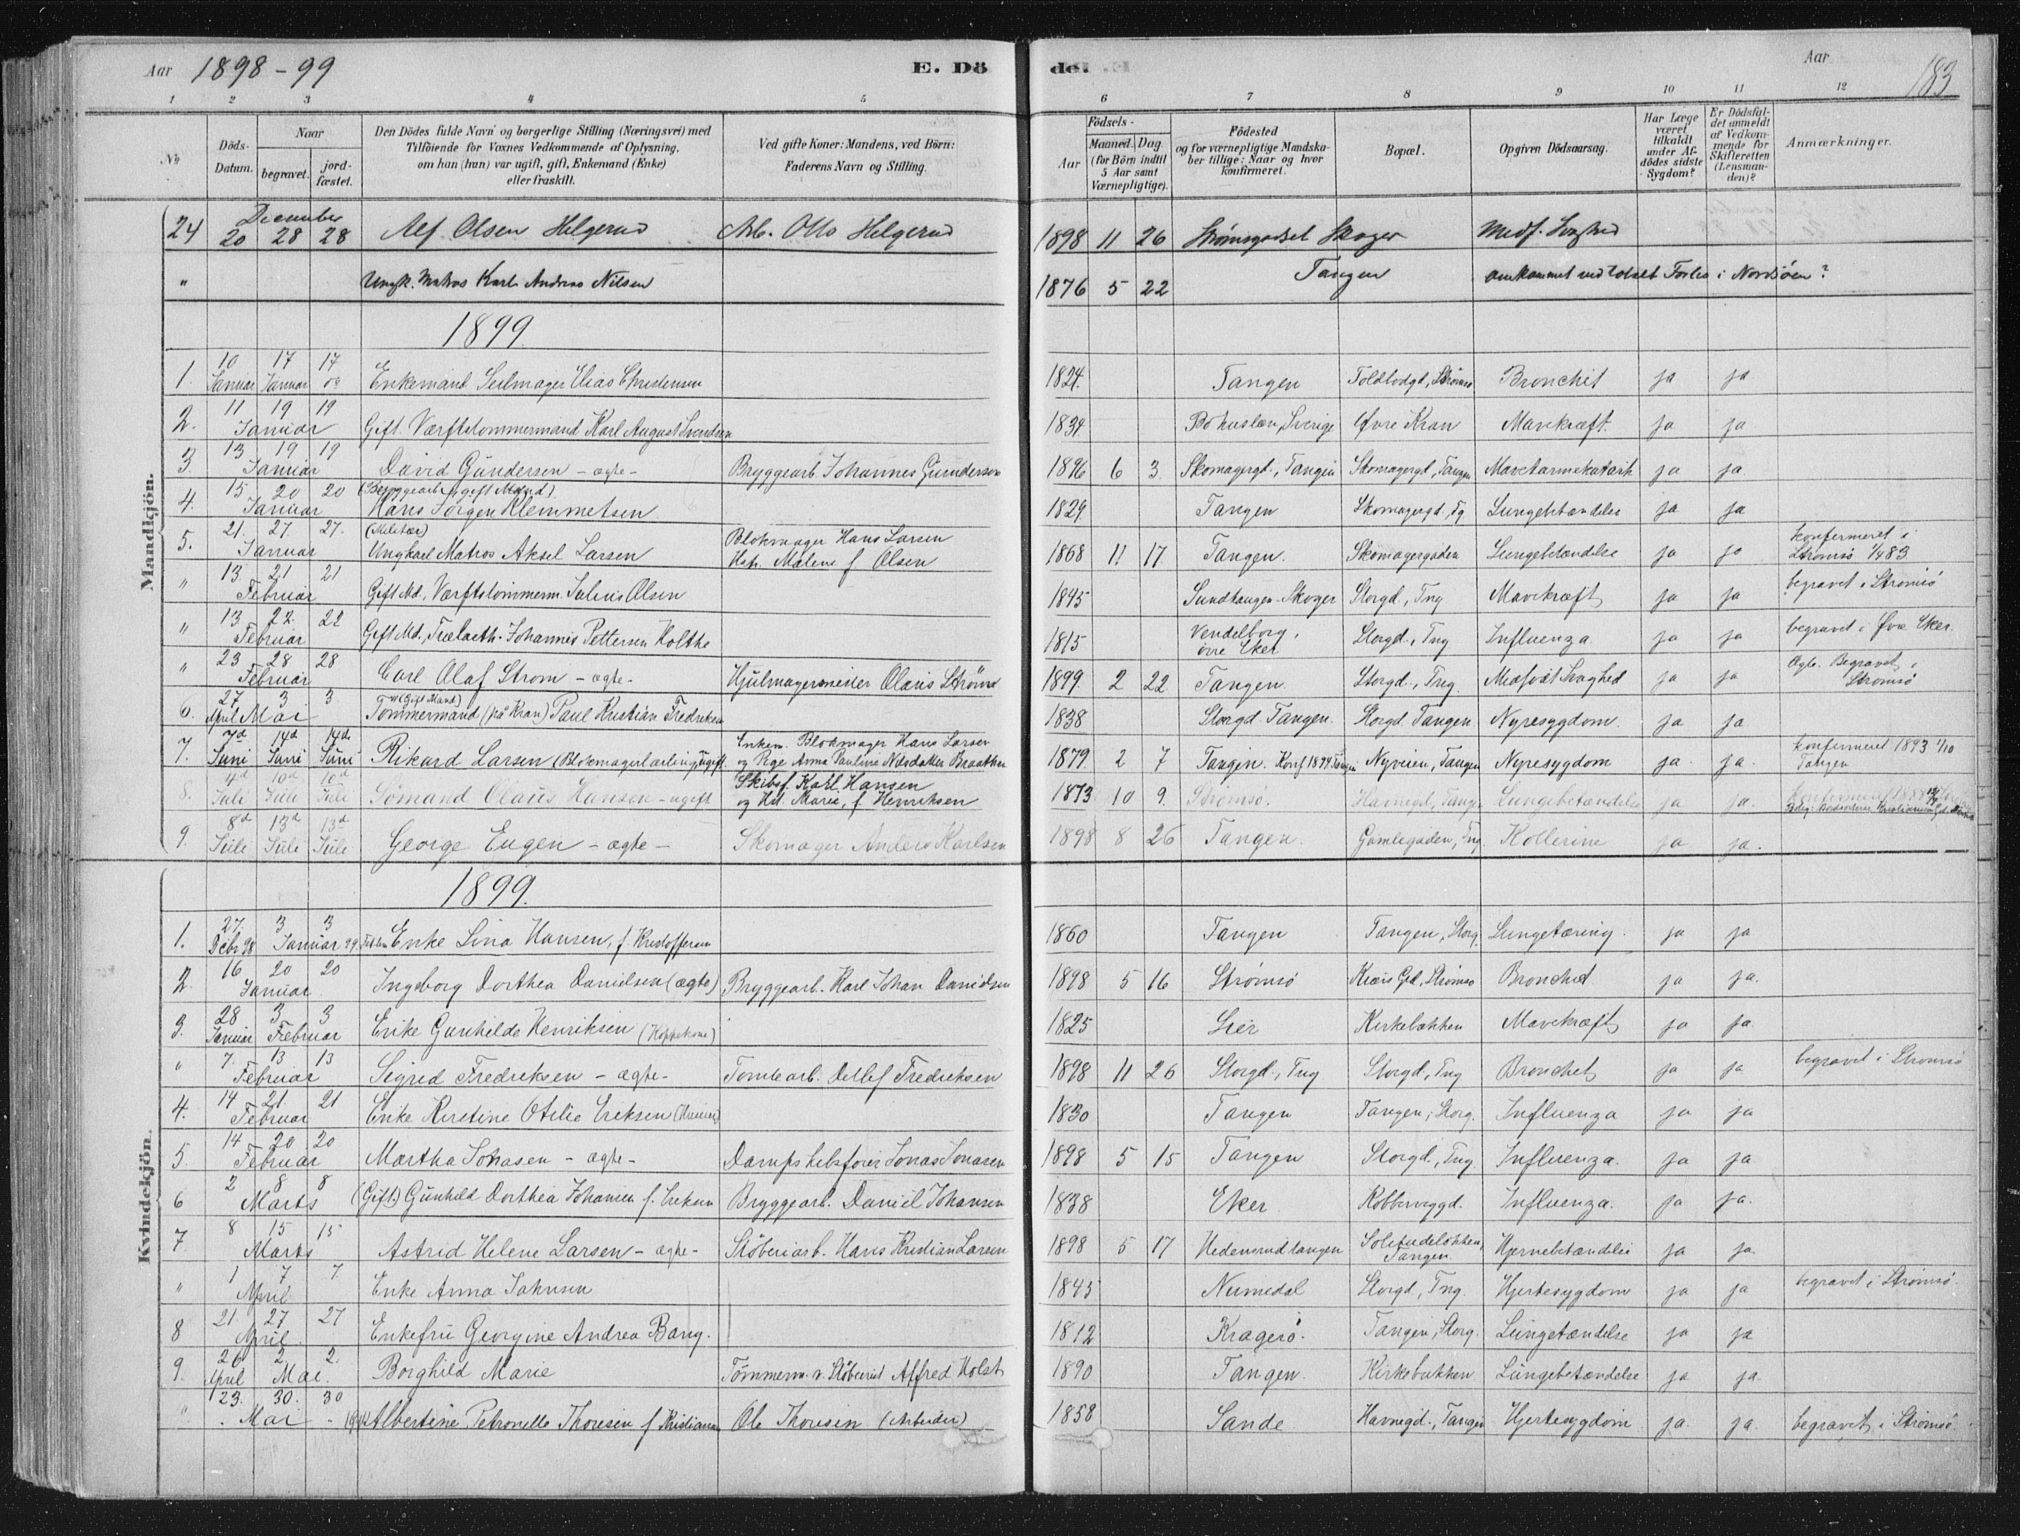 Aar 1898-99
E. Dö
de.
Aar
183
1 2 3 4 5 6 7 8 9 10 11 12
No
Döds-Datum.
Naar
begravet.
jord-fæstet.
Den Dödes fulde Navn og borgerlige Stilling (Næringsvei) med
Tilföiende for Voxnes Vedkommende af Oplysning,
om han (hun) var ugift, gift, Enkemand (Enke)
eller fraskilt.
Ved gifte Koner: Mandens, ved Börn:
Faderens Navn og Stilling.
Födsels-
Aar
Maaned. Dag.
(for Börn indtil
5 Aar samt
Værnepligtige).
Födested
og for værnepligtige Mandska-
ber tillige: Naar og hvor
konfirmeret.
Bopæl.
Opgiven Dödsaarsag.
Har Læge
været
tilkaldt
under Af-
dödes sidste
Sygdom?
Er Dödsfal-
det anmeldt
af Vedkom-
mende for
Skifteretten
(Lensman-
den)?
Anmærkninger.
Mandkjön.
December
24 20 28 28 Alf Olsen Helgerud Arb. Otto Helgerud 1898 11 26 Strømsgodset Skoger Medf. Svaghed
" Ungk. Matros Karl Andreas Nilsen 1876 5 22 Tangen omkommet ved totalt Forlis i Nordsöen?
1899
1. 10 Januar 17 Januar 17 Enkemand Seilmager Elias Christensen 1824. Tangen Toldbodgd, Strømsö Bronchit ja ja
2. 11 19 19 Januar Gift. Værftstømmermand Karl August Svendsen 1834. Bohuslæn, Sverige Øvre Kran Mavekræft. ja ja
3. 13 19 19 Januar David Gundersen - ægte - Bryggearb. Johannes Gundersen 1896 6 3. Skomagergd., Tangen Skomagergd, Tangen Mavetarmekatarrh ja ja
4. 15 20 20 Januar (Bryggearb., gift Mand) Hans Jørgen Klemmetsen 1829. Tangen Skomagergd., Tg Lungebetændelse ja ja
5. 21. 27. 27. Januar (Militær) Ungkarl Matros Aksel Larsen Blokmager Hans Larsen Hstr. Malene f Olsen 1868 11 17. Tangen. Skomagergaden Lungebetændelse ja ja konfirmeret i Strømsö 1/4 83
" 13 21 21 Februar Gift Md., Værftstømmerm. Julius Olsen 1845 Sundtangen Skoger Storgd., Tng Mavekræft ja ja begravet i Strømsö
" 13 22. 22 Februar Gift Md., Trælasth. Johannes Pettersen Holthe 1815 Vendelborg, övre Eker Storgd., Tng Influenza. ja ja begravet i Øvre Eker.
" 23 28 28 Februar Carl Olaf Strøm - ægte - Hjulmagermester Olaus Strøm 1899. 2 22 Tangen. Storgd., Tng. Medfödt Svaghed ja ja Ægte. Begravet i Strømsö
6. 27 April 3 3 Mai (Gift Mand) Tömmermand (på Kran) Paul Kristian Fredriksen 1838 Storgd Tangen. Storgd. Tangen Nyresygdom. ja ja.
7. 7d Juni 14d Juni 14d. Juni Rikard Larsen (Blokmagerlærling) ugift Enkem. Blokmager Hans Larsen og Pige Anna Pauline Nilsdatter Braathen 1879. 2 7 Tangen. Konf. 1894 Tangen Nyveien, Tangen Nyresygdom ja. ja. konfirmeret 1893 1/10 Tangen
8. 4d Juli 10d Juli 10d Juli Sømand Olaus Hansen - ugift Skibsf. Karl Hansen og Hst. Marie, f Henriksen 1873 10 9. Strømsö. Havnegd, Tangen Lungebetændelse ja ja.
9. 8d Juli 13d Juli 13d Juli George Eugen - ægte - Skomager Anders Karlsen 1898 8 26 Tangen. Gamlegaden, Tng. Kollerine ja ja.
Kvindekjön.
1899.
1. 27, Decbr 98 3 3 Januar 99 Enke Lina Hansen, f Kristoffersen 1860 Tangen Tangen, Storg. Lungetæring. ja ja
2. 16 20 20 Januar Ingeborg Dorthea Danielsen (ægte) Bryggearb. Karl Johan Danielsen 1898 5 16 Strømsö Kræis Gd, Strømsö Bronchit ja ja.
3. 28 Januar 3 3 Februar Enke Gunhilde Henriksen (Koppekone) 1825 Lier Kirkebakken Mavekræft ja ja.
" 7. 13 13 Februar Sigrid Fredriksen - ægte - Tomtearb. Detlef Fredriksen 1898 11 26 Storgd., Tng Storgd, Tng Bronchit ja ja begravet i Strømsö
4. 14 21 21 Februar Enke Kirstine Otilie Eriksen 1830 Tangen Tangen, Storg. Influenza ja ja
5. 14 20 20 Februar Martha Jonasen - ægte - Dampskibsförer Jonas Jonasen 1898 5 15 Tangen Storgd., Tng Influenza. ja ja
6 2 8 8 Marts (Gift) Gunhild Dorthea Johansen f. Bryggearb. Daniel Johansen 1838 Eker. Kobberveggd. Influenza. ja ja.
7. 8 15 15 Marts Astrid Helene Larsen - ægte - Støberiarb. Hans Kristian Larsen 1898 5 17 Hedensrudtangen Solstudelökken, Tangen. Hjernebetændelse ja ja
" 1 7 7 April Enke Anna Johnsen 1845 Numedal Storgd, Tng. Hjertesygdom ja ja begravet i Strømsö.
8 21. 27 27 April. Enkefru Georgine Andrea Bang. 1812 Kragerö. Tangen, Storg. Lungetændelse ja ja
9. 26 April 2 2. Mai. Borghild Marie Tømmerm. v. Støberiet Alfred Holst 1890 Tangen. Kirkebakken Lungebetændelse ja ja
" 23. 30. 30 Mai (Gift) Albertine Petronelle Thoresen f Kristiansen Ole Thoresen (Arbeider) 1858 Sande. Havnegd., Tangen Hjertesygdom ja. ja. begravet i Strømsö.